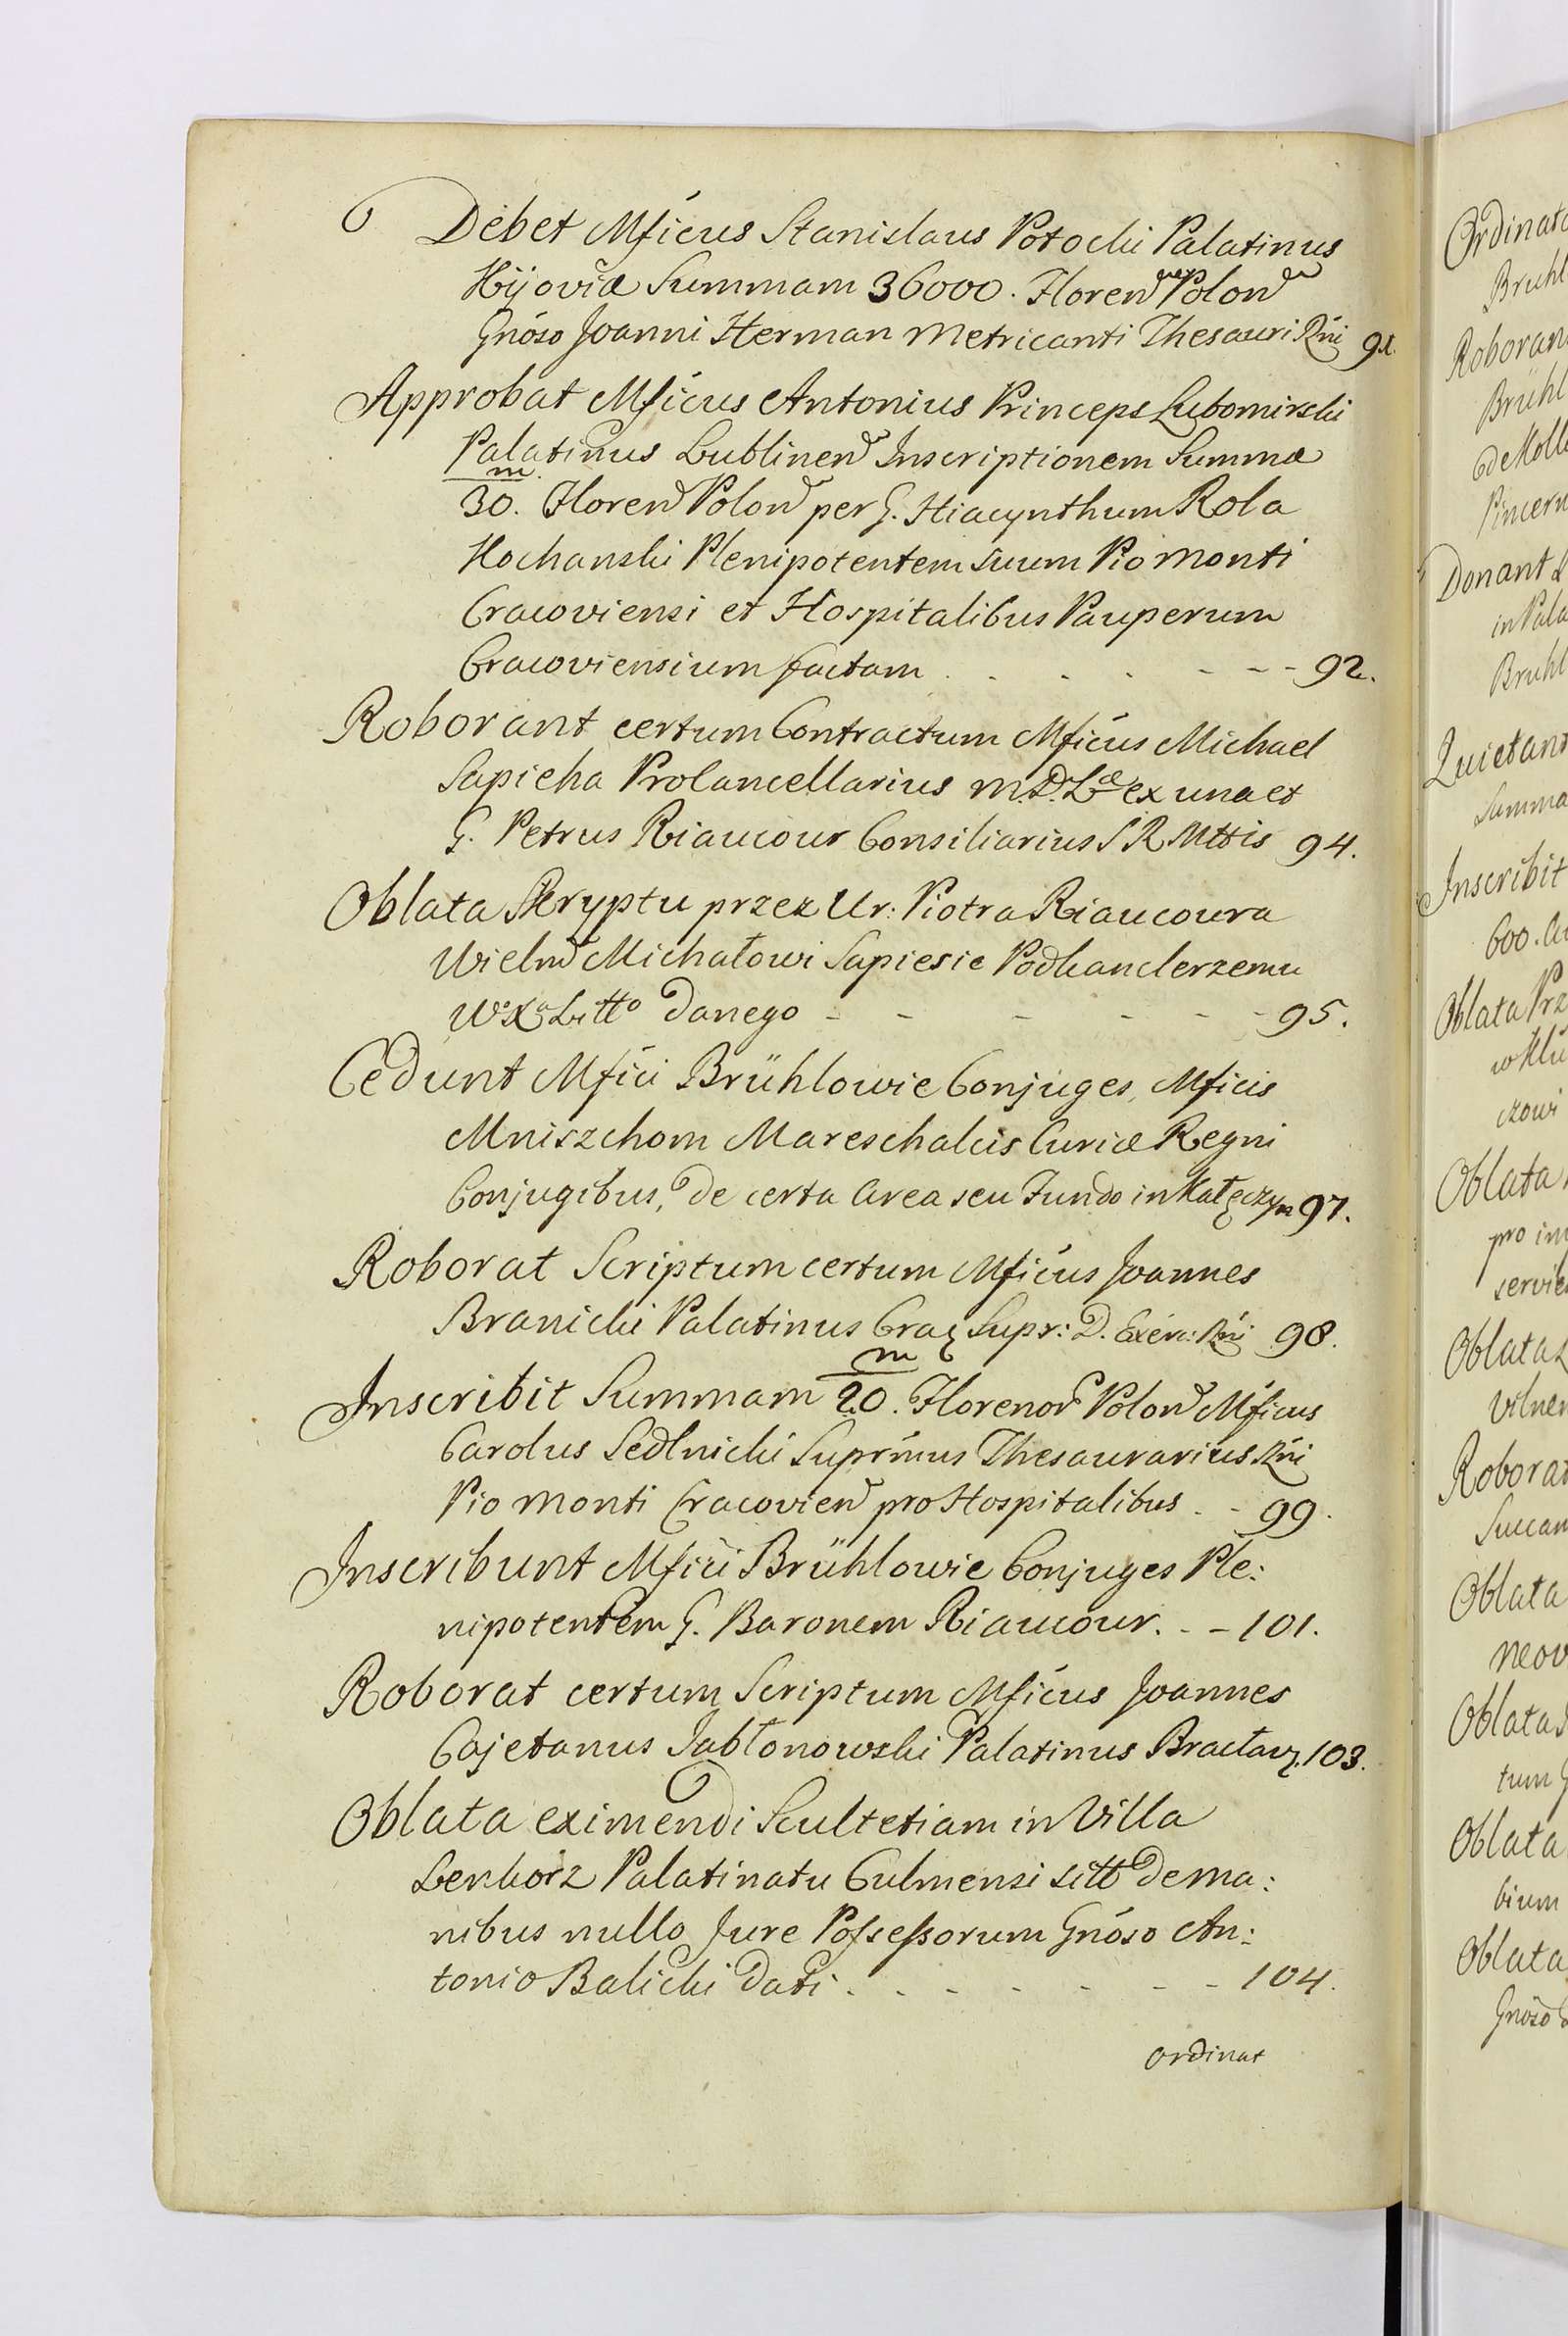 Debet Mficus Stanislaus Potocki Palatinus
Kijoviæ Summam 36000. Floren Polon
Gnoso Joanni Herman Metricanti Thesauri Rni 91.
Approbat Mficus Antonius Princeps Lubomirski
Palatinus Lublinen Inscriptionem Summæ
m
30. Floren Polon per G. Hiacynthum Rola
Kochanski Plenipotentem suum Pio Monti
Cracoviensi et Hospitalibus Pauperum
Cracoviensium factam - - - 92.
Roborant certum Contractum Mficus Michael
Sapieha Procancellarius M.D.Læ ex una et
G. Petrus Riaucour Consiliarius S R Mttis 94.
Oblata Skryptu przez Ur: Piotra Riaucoura
Wieln Michałowi Sapiesie Podkanclerzemu
Wo Xa Litto danego - - - - - 95.
Cedunt Mfici Brühlowie Conjuges, Mficis
Mniszchom Mareschalcis Curiæ Regni
Conjugibus, de certa Area seu Fundo in Kałęczyn 97.
Roborat Scriptum certum Mficus Joannes
Branicki Palatinus Crac Supr: D. Exerc: Rni 98.
m
Inscribit Summam 20. Florenor Polon Mficus
Carolus Sedlnicki Suprmus Thesaurarius Rni
Pio Monti Cracovien pro Hospitalibus - - 99.
Inscribunt Mfici Brühlowie Conjuges Ple:
nipotentem G. Baronem Riaucour. - - 101.
Roborat certum Scriptum Mficus Joannes
Cajetanus Jabłonowski Palatinus Bracław. 103.
Oblata eximendi Scultetiam in Villa
Lenkorz Palatinatu Culmensi sitt de ma:
nibus nullo Jure Possessorum Gnoso An:
tonio Balicki dati - - - - - 104.
ordinat
Ordinat
Bruhl
Roboran
Brühl
de Moll
Pincern
Donant
in Pala
Bruhl
Quietant
Summa
Inscribit
600.
Oblata Prz
w Klu
czowi
Oblata
pro im
servie
Oblata
Vilnen
Roborat
Succam
Oblata
neov
Oblata
tum
Oblata
bium
Oblata
Gnoso